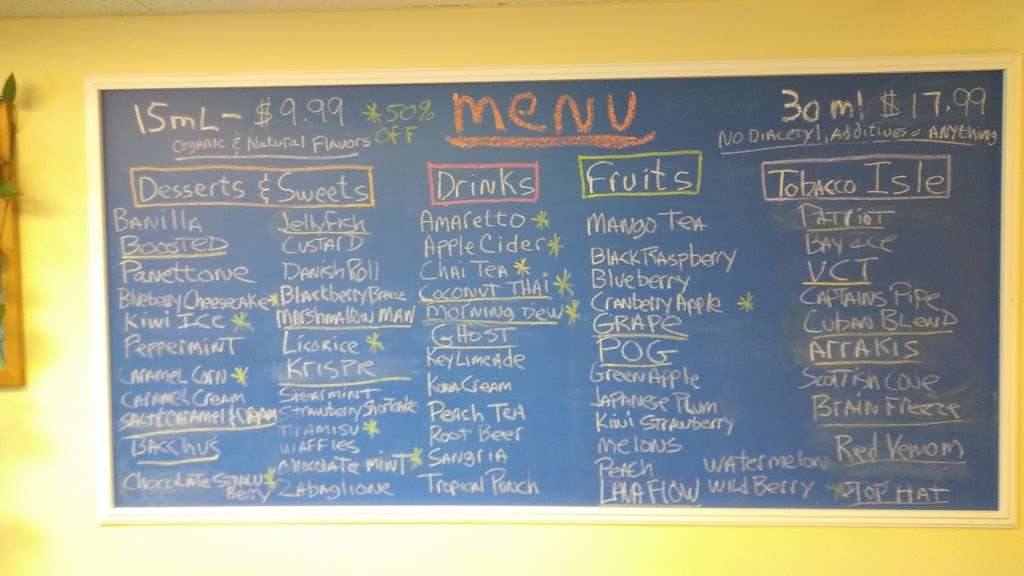 15mL- $9.99
*50% OFF
Organic & Natural Flavors
menu
30ml $17.99
No Diacetyl, Additives or Anything
Desserts & Sweets
Banilla
Boosted
Panettone
Blueberry Cheesecake*
Kiwi Ice *
Peppermint
Caramel Corn *
Caramel Cream
Salted Caramel & Cream
Bacchus
Chocolate Straw *
Berry
Jellyfish
Custard
Danish Roll
Blackberry
Marshmallow Man
Licorice *
Krispie
Spearmint
Strawberry Shortcake
Tiramisu *
Waffles
Chocolate Mint *
Zabaglione
Drinks
Amaretto *
Apple Cider *
Chai Tea *
Coconut Thai *
Morning Dew *
Ghost
Key Limeade
Kona Cream
Peach Tea
Root Beer
Sangria
Tropical Punch
Fruits
Mango Tea
Black Raspberry
Blueberry
Cranberry Apple *
Grape
POG
Green Apple
Japanese Plum
Kiwi Strawberry
Melons
Peach
Lava Flow
Watermelon
Wild Berry
Tobacco Isle
Patriot
Bay
VCT
Captains Pipe
Cuban Blend
Arrakis
Scottish Cove
Brain Freeze
Red Venom
*Top Hat